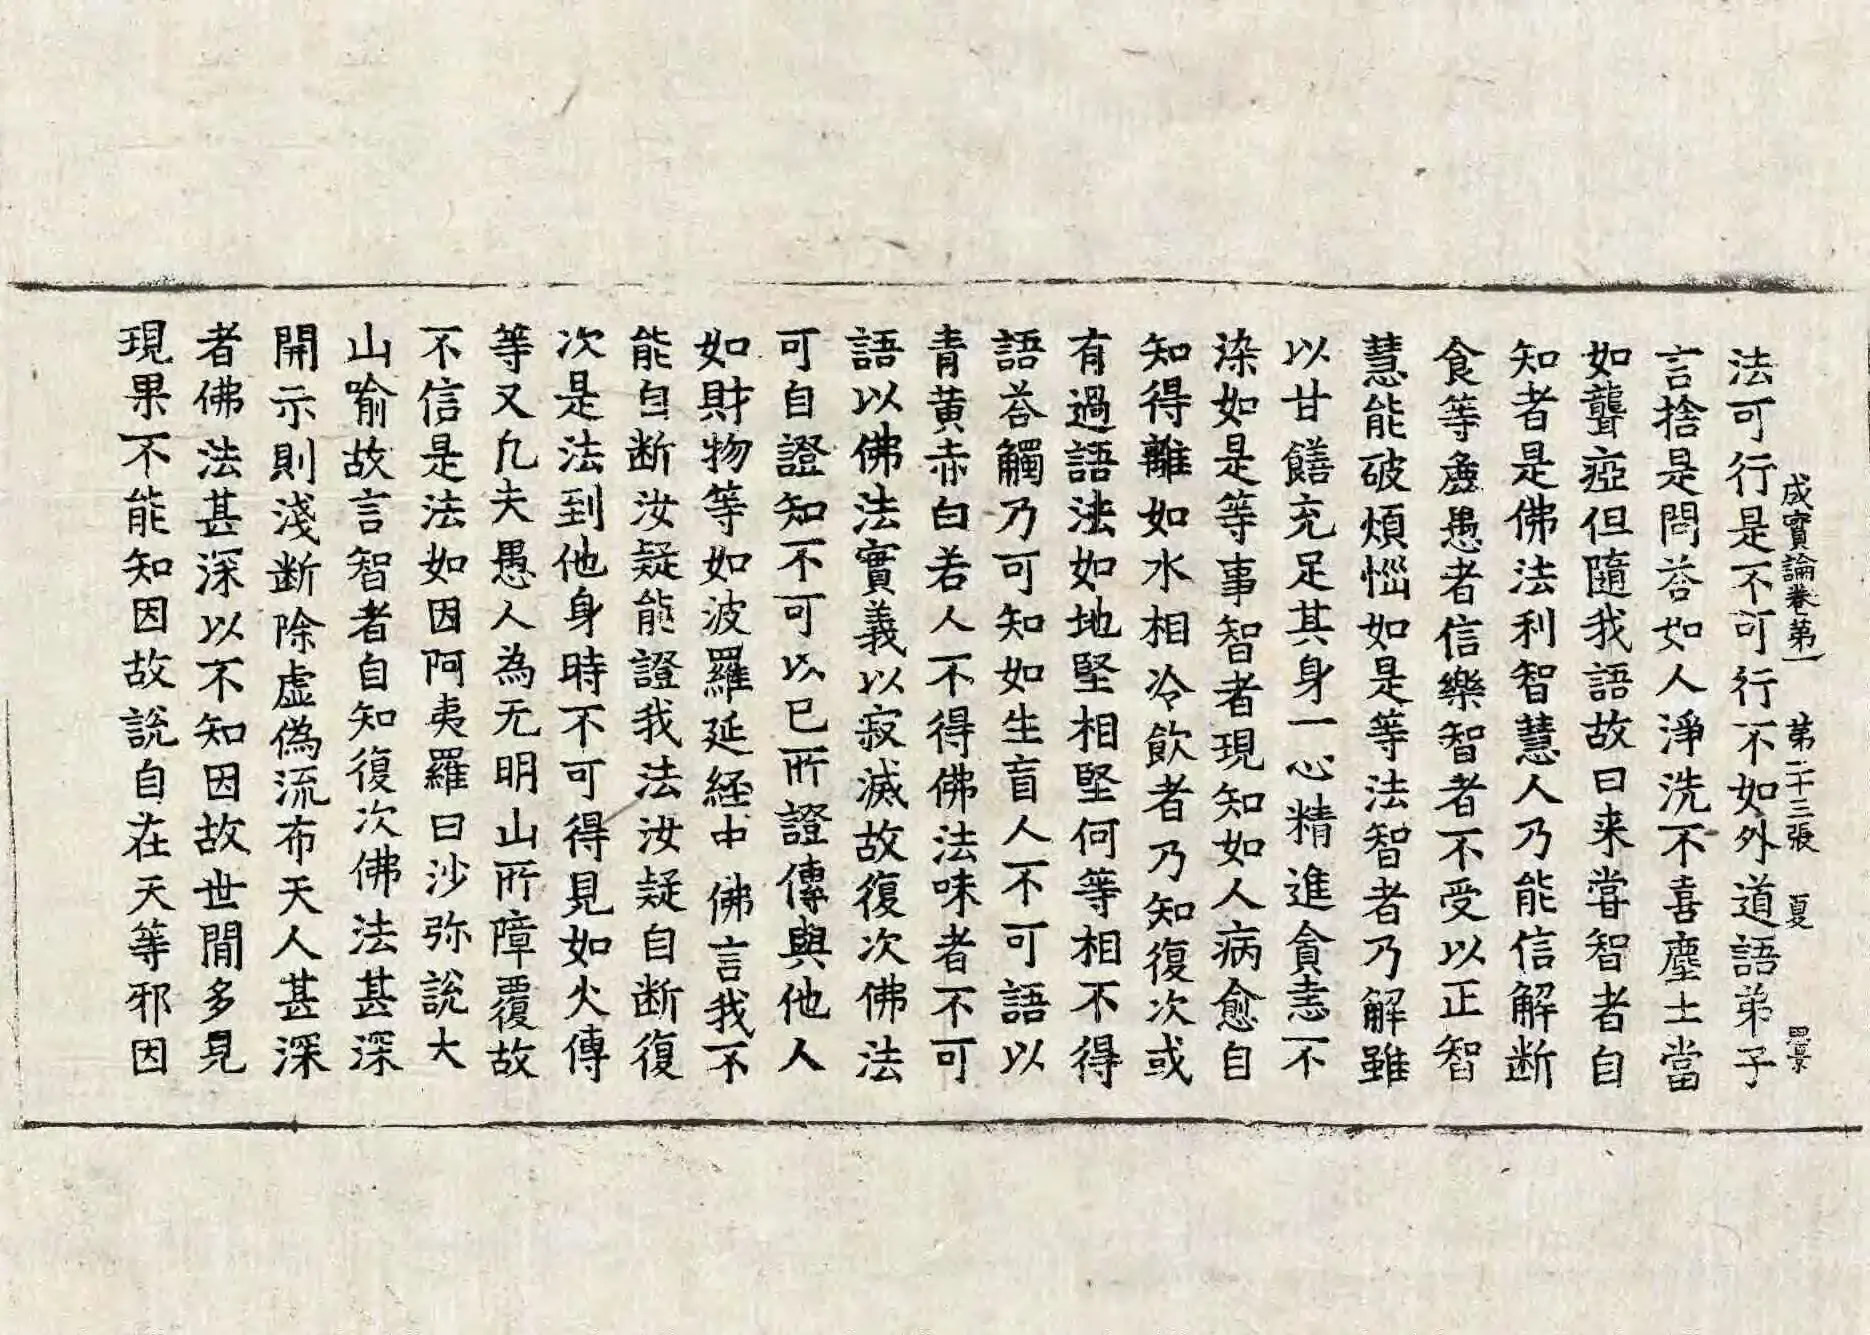 成實論卷第一 第二十三張 夏
法可行是不可行行不如外道語弟子
言捨是問荅如人淨洗不喜塵土當
如聾瘂但隨我語故曰来甞智者自
知者是佛法利智慧人乃能信解断
食等麁愚者信樂智者不受以正智
慧能破煩惱如是等法智者乃解雖
以甘饍充足其身一心精進貪恚不
染如是等事智者現知如人病愈自
知得離如水相冷飲者乃知復次或
有過語法如地堅相堅何等相不得
語荅觸乃可知如生盲人不可語以
青黄赤白若人不得佛法味者不可
語以佛法實義以寂滅故復次佛法
可自證知不可以已所證傳與他人
如財物等如波羅延経中佛言我不
能自断汝疑能證我法汝疑自断復
次是法到他身時不可得見如火傳
等又凡夫愚人為无明山所障覆故
不信是法如因阿夷羅曰沙弥說大
山喻故言智者自知復次佛法甚深
開示則淺断除虛偽流布天人甚深
者佛法甚深以不知因故世間多見
現果不能知因故說自在天等邪因